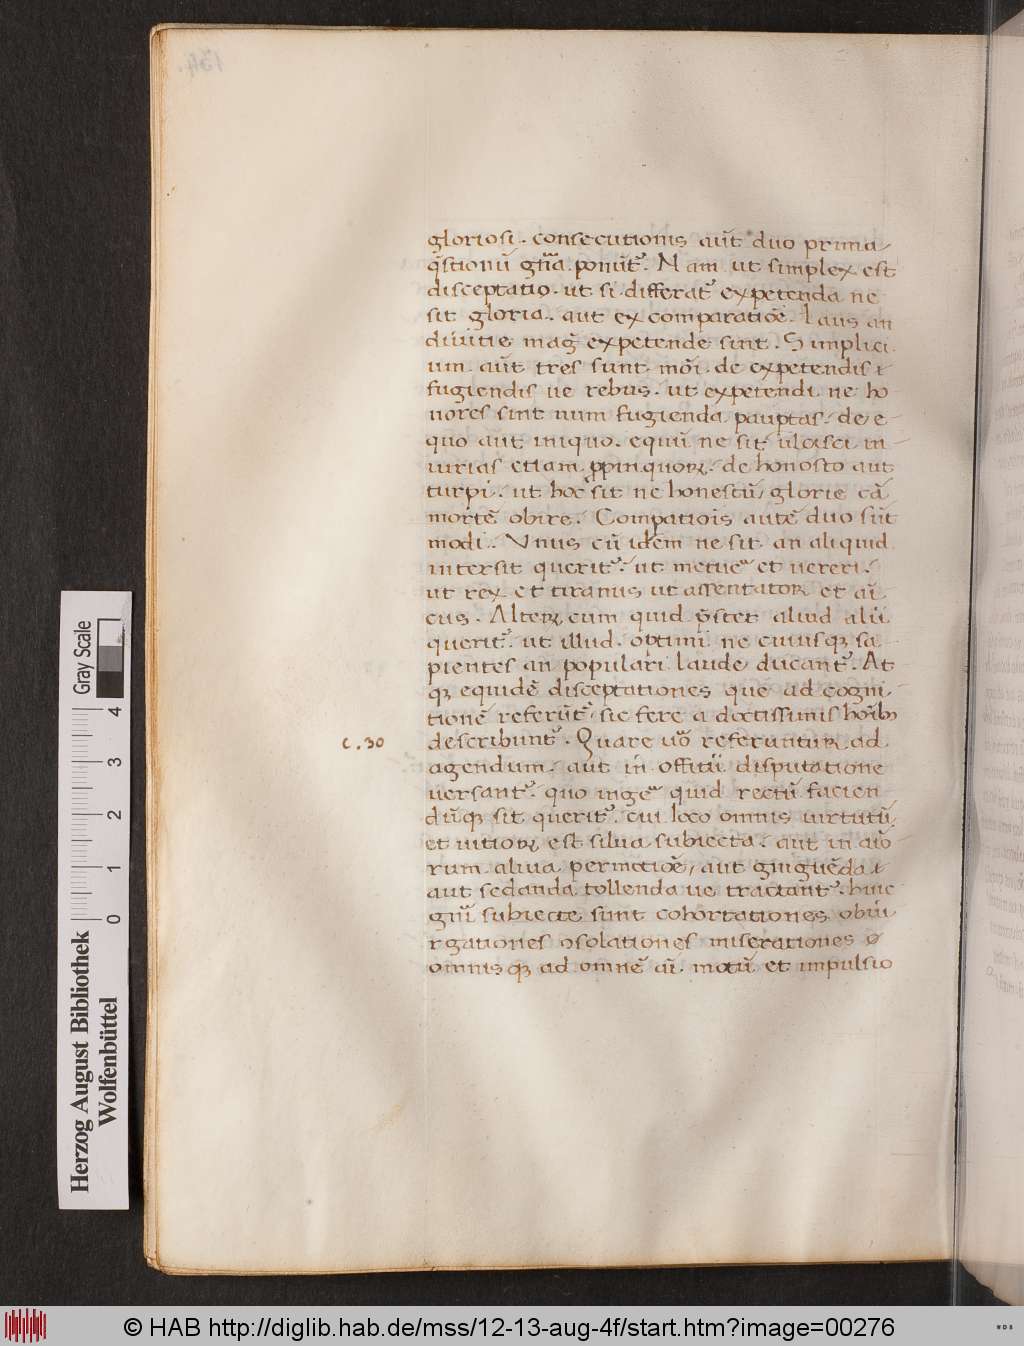 134.
gloriosi. consecutionis aut̄ duo prima
q̄stionū gn̄a. ponūt᷑. Nam ut simplex est
disceptatio. ut si differat᷑ expetenda ne
sit gloria. aut ex comparatiōe. Laus an
diuitie maḡ expetende sint. Simplici
um aut̄ tres sunt mōi. de expetendis ⁊
fugiendis ue rebus. ut expetendi ne ho
nores sint num fugienda paup̄tas. de e
quo aut iniquo. equū ne sit ulcisci in
iurias etiam ꝓpinquoꝝ. de honosto aut
turpi. ut hoc sit ne honestū, glorie cā
mortē obire. Compatiois autē duo sūt
modi. Vnus cū idem ne sit an aliquid
intersit querit᷑. ut metue᷑ et uereri.
ut rex et tiranus ut assentatoꝝ et aī
cus. Alteꝝ cum quid p̄stet aliud alii
querit᷑. ut illud. optimi ne cuiusqꝫ sa
pientes an populari laude ducant᷑. At
qꝫ equidē disceptationes que ad cogni
tionē referūt᷑, sic fere a doctissimis hoib̄
describunt᷑. Quare uō referuntuꝝ ad
c. 30
agendum. aut in offitii disputatione
uersant᷑. quo inge᷑ quid rectū facien
dūqꝫ sit querit᷑. cui loco omnis uirtutū
et uitioꝝ est silua subiecta. aut in aīo
rum aliua permotiōe, aut gingnēda ⁊
aut sedanda tollenda ue tractant᷑. huic
gn̄i subiecte sunt cohortationes obiu
rgationes ꝯsolationes miserationes
omnisqꝫ ad omnē aī. motū et impulsio
Gray Scale
0 1 2 3 4
Herzog August Bibliothek
Wolfenbüttel
© HAB http://diglib.hab.de/mss/12-13-aug-4f/start.htm?image=00276